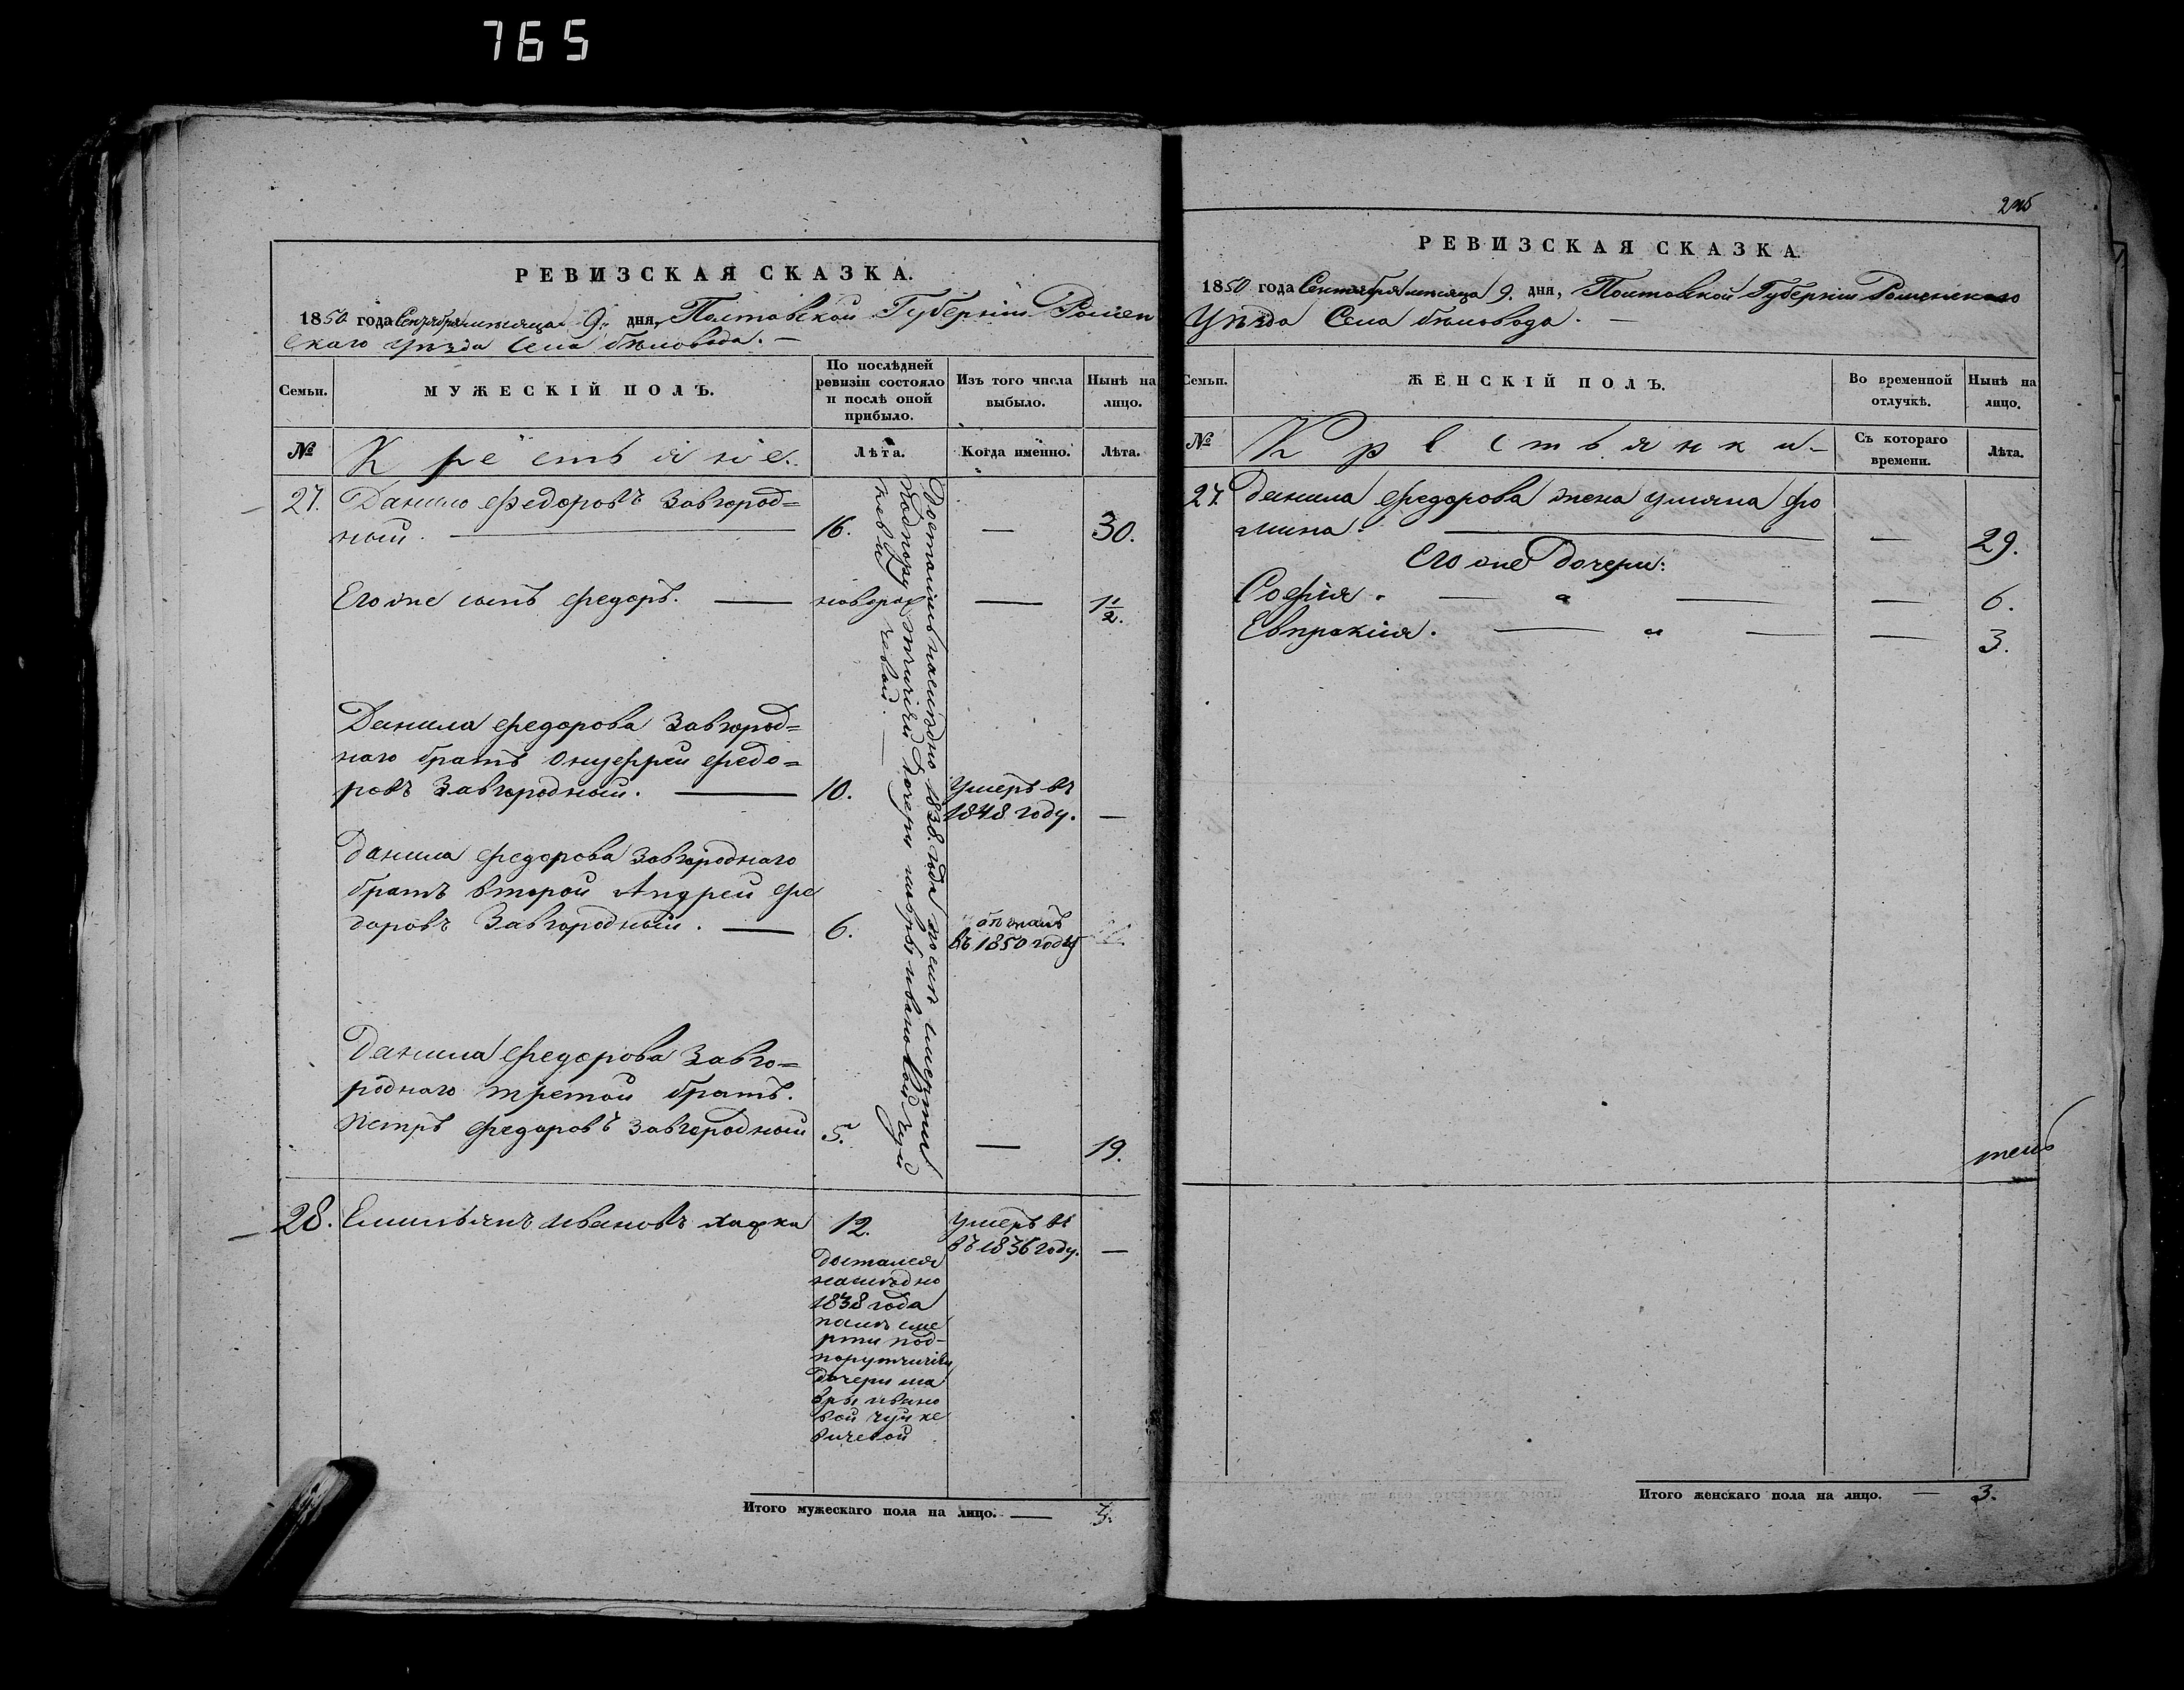 765
РЕВИЗСКАЯ СКАЗКА.
1850 года Сентября месяца 9. дня, Полтавской Губерніи Ромен
скаго Уѣзда Села бѣловода.
Семьи.
МУЖЕСКІЙ ПОЛЪ.
По послѣдней
ревизіи состояло
и послѣ оной
прибыло.
Изъ того числа
выбыло.
Нынѣ на
лицо.
№
Крестьяне.
Лѣта.
Когда именно.
Лѣта.
27. Данило Федоровъ Завгород=
ный. — 16. — 30.
Его же сынъ Федоръ. — новорож — 1 1/2.
Данила Федорова Завгород=
наго братъ Онуфрей Федо=
ровъ Завгородный. — 10. Умеръ въ
1848 году. —
Данила Федорова Завгороднаго
братъ второй Андрей Фе
доровъ Завгородный. — 6.
въ 1850 году
Данила Федорова Завго=
роднаго третой братъ.
Петръ Федоровъ Завгородный 5. — 19.
Достались наслѣдно 1838. года послѣ смерти
подпоручичей дочери мавры ивановой Чуй
кевичевой. —
28. Емельянъ Ивановъ 12. Умеръ въ
въ 1836 году. —
Достался
наслѣдно
1838 года
послѣ сме
рти под-
порутчичей
дочери ма
вры ивано
вой чуйке
вичевой
Итого мужескаго пола на лицо. — 3.
РЕВИЗСКАЯ СКАЗКА
1850 года Сентября месяца 9. дня, Полтавской Губерніи Роменскаго
Уѣзда Села бѣловода. —
Семьи.
ЖЕНСКІЙ ПОЛЪ.
Во временной
отлучкѣ.
Нынѣ на
лицо.
№
Крестьянки —
Съ котораго
времени.
Лѣта.
27. Данила Федорова жена Ульяна Фо
мина. — — 29.
Его же дочери:
Софія. — " — — 6.
Евпраксия. — " — — 3.
Итого женскаго пола на лицо. — 3.